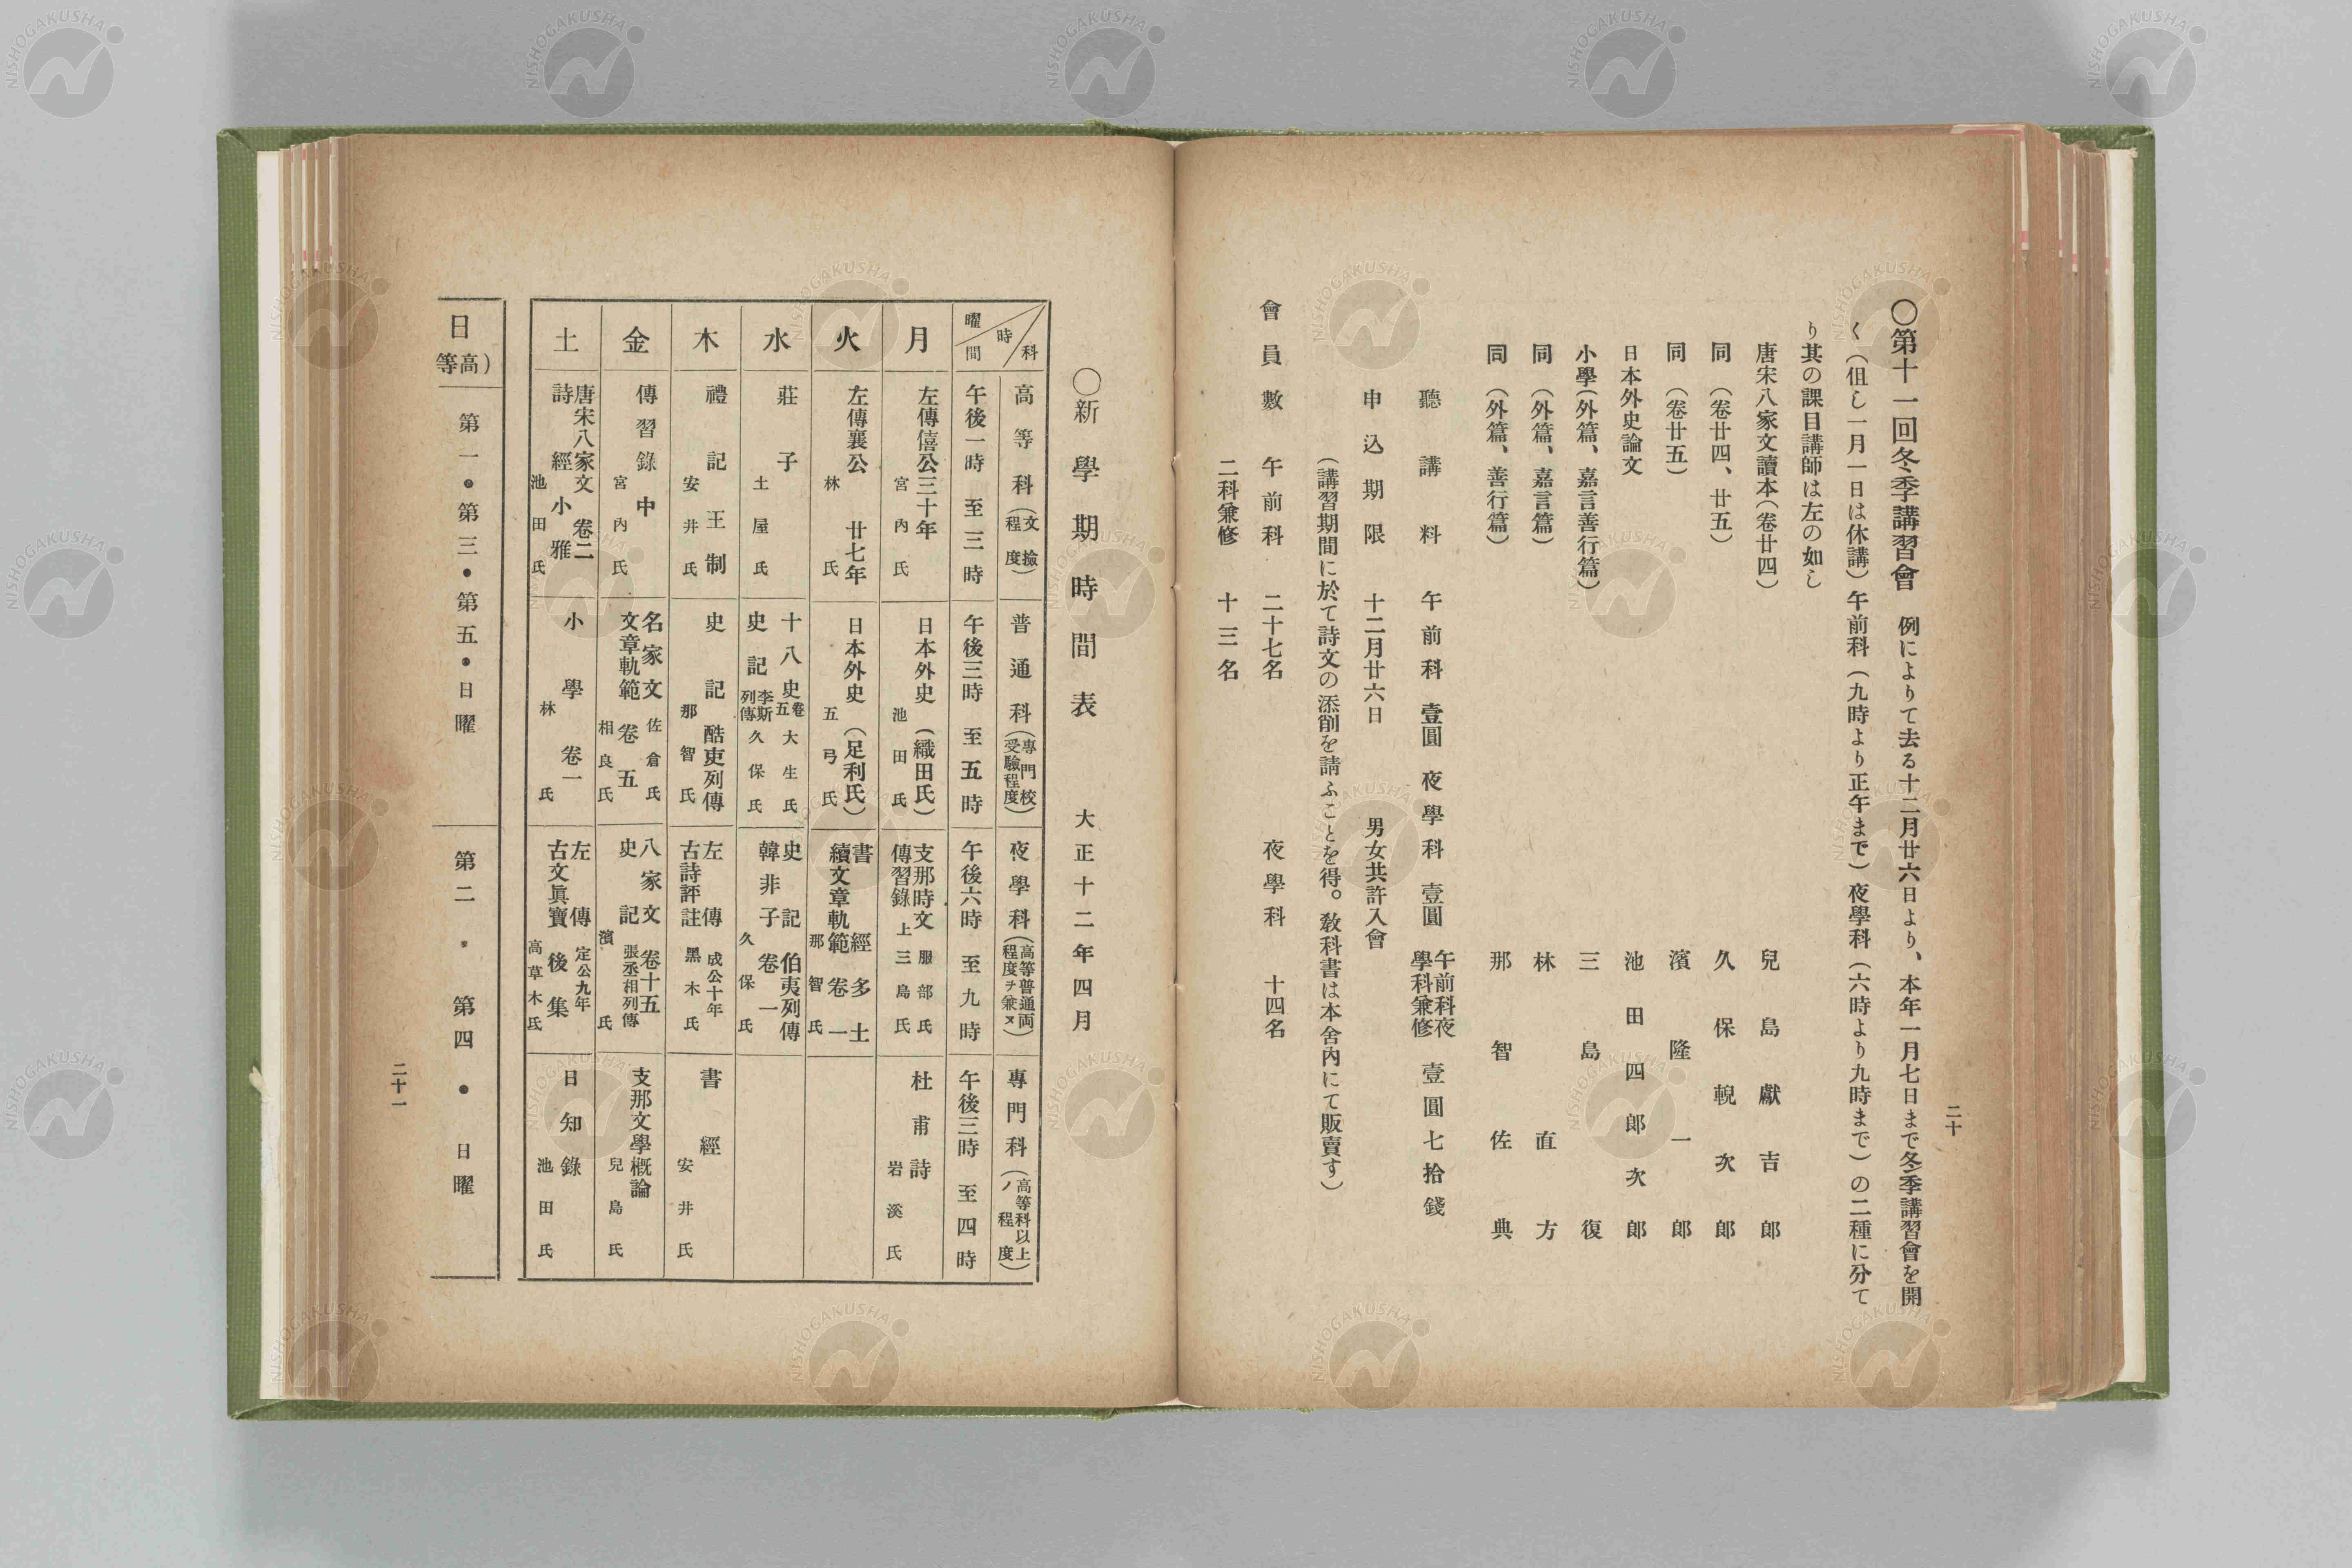 二十
〇第十一回冬季講習會　例によりて去る十二月廿六日より、本年一月七日まで冬季講習會を開
く（伹し一月一日は休講）午前科（九時より正午まで）夜學科（六時より九時まで）の二種に分て
り其の課目講師は左の如し
唐宋八家文讀本（卷廿四）　兒島獻吉郎
同　（卷廿四、廿五）　久保輗次郎
同　（卷廿五）　濱隆一郎
日本外史論文　池田四郎次郎
小學（外篇、嘉言善行篇）　三島復
同　（外篇、嘉言篇）　林直方
同　（外篇、善行篇）　那智佐典
聽講料　午前科　壹圓　夜學科　壹圓　午前科夜學科兼修　壹圓七拾錢
申込期限　十二月廿六日　男女共許入會
（講習期間に於て詩文の添削を請ふことを得。敎科書は本舍內にて販賣す）
會員數　午前科　二十七名　夜學科　十四名
二科兼修　十三名
〇新學期時間表　大正十二年四月
科　時間　曜
高等科（文撿程度）
普通科（專門校受驗程度）
夜學科（高等普通両程度ヲ兼ヌ）
專門科（高等科以上ノ程度）
午後一時至三時
午後三時至五時
午後六時至九時
午後三時至四時
月
左傳僖公三十年　宮內氏
日本外史（織田氏）　池田氏
支那時文　服部氏
傳習錄　上　三島氏
杜甫詩　岩溪氏
火
左傳襄公廿七年　林氏
日本外史（足利氏）　五弓氏
書經　多士
續文章軌範　卷一　那智氏
水
莊子　土屋氏
十八史　卷五　大生氏
史記　李斯列傳　久保氏
史記　伯夷列傳
韓非子　卷一　久保氏
木
禮記　王制　安井氏
史記　酷吏列傳　那智氏
左傳　成公十年
古詩評註　黑木氏
書經　安井氏
金
傳習錄　中　宮內氏
名家文　佐倉氏
文章軌範　卷五　相良氏
八家文　卷十五
史記　張丞相列傳　濱氏
支那文學槪論　兒島氏
土
唐宋八家文　卷二
詩經　小雅　池田氏
小學　卷一　林氏
左傳　定公九年
古文眞寶　後集　高草木氏
日知錄　池田氏
日
（高等
第一・第三・第五・日曜
第二・第四・日曜
二十一